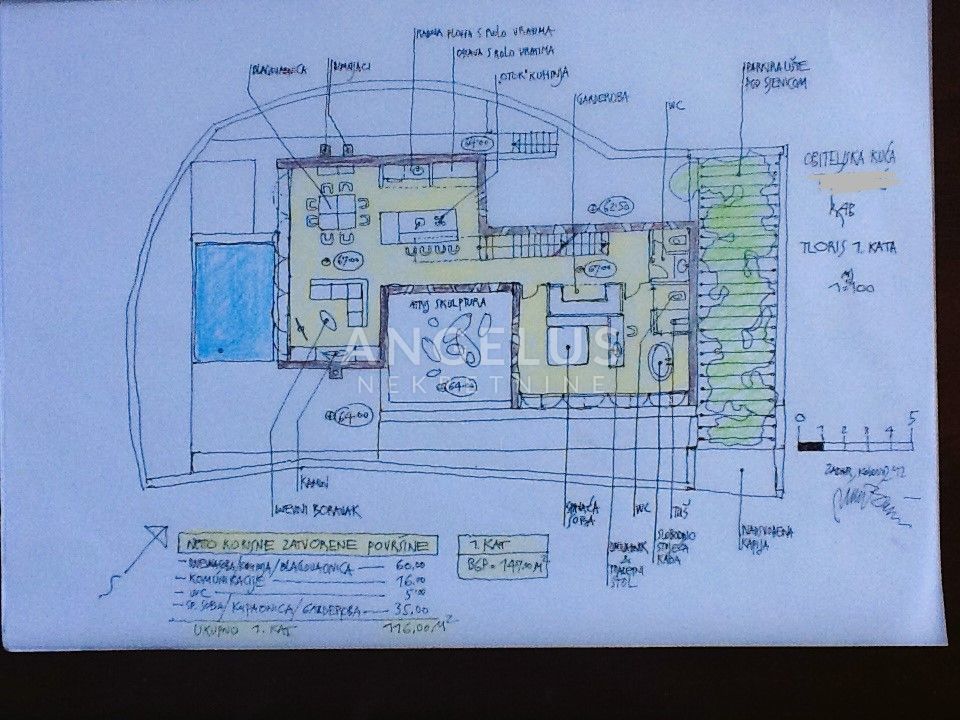 RADNA PLOHA S ROLO VRATIMA
OPRAVA S ROLO VRATIMA
OTOK KUHINJA
BLAGOVAONICA
DIMNJACI
GARDEROBA
WC
PARKIRALIŠTE
POD SJENICOM
OBITELJSKA KUĆA
RAB
TLORIS 1. KATA
1:100
62.50
67.00
67.00
ATRIJ SKULPTURA
ANGELUS
NEKRETNINE
64.00
0 1 2 3 4 5
KAMIN
DNEVNI BORAVAK
SPAVAĆA
SOBA
WC
TUŠ
SLOBODNO
STOJEĆA
KADA
TOALETNI
STOL
NATKRIVENA
KAPIJA
NETO KORISNE ZATVORENE POVRŠINE
KUHINJA/BLAGOVAONICA — 60,00
KOMUNIKACIJE — 16,00
WC — 5,00
SP. SOBA/KUPAONICA/GARDEROBA — 35,00
UKUPNO 1. KAT 116,00 M²
1. KAT
BGP = 147,00 M²